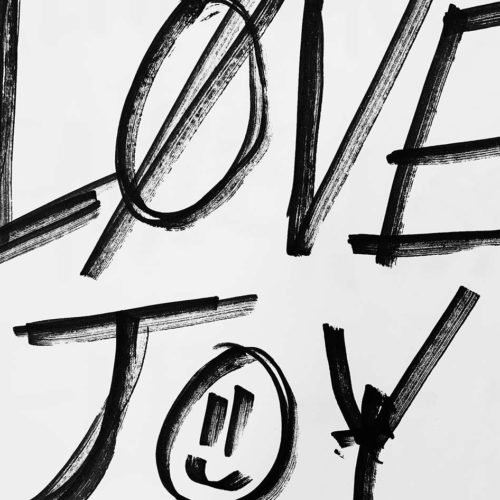 LØVE
JOY